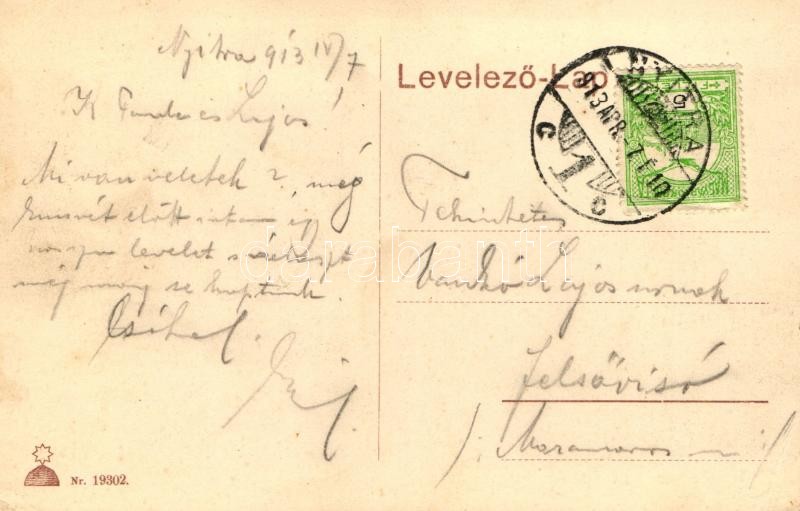 Nyitra 913 IV/7
K. Tinda és Lajos!
Mi van veletek?, még
husvét előtt irtam egy
hosszu levelet s választ
még máig se kaptunk.
Csókol
Levelező-Lap
NYITRA
913 APR. 7
C 1 C
5
Tekintetes
Vankó Lajos urnak
Felsővisó
/: Maramaros m :/
Nr. 19302.
darabanth